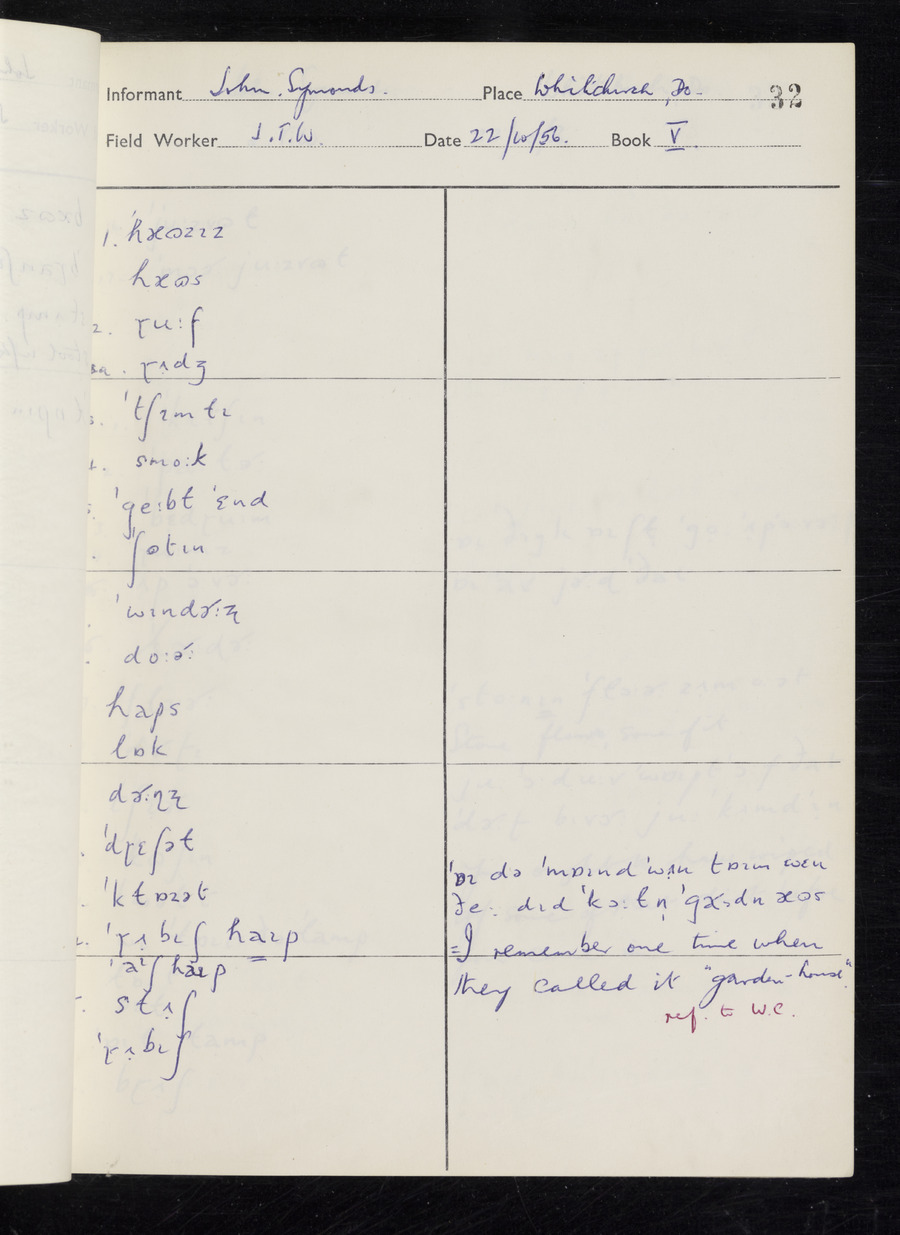 Informant John. Symonds. Place Whitchurch, Do. 32
Field Worker J.T.W. Date 22/10/56. Book V
1. ˈhæʊzɪz
hæʊs
2. ɽu:f
ɽʌ̣dʒ
ˈtʃɪmtɪ
smo:k
ˈge:bt ˈɛnd
ʃɒtɪn
ˈwɪndɚ:ʐ
do:ɚ:
haps
lɒk
dɚ:nʐ
ˈdɽɛʃət
ˈktɒɪət
ˈɽʌ̣bɪʃ haɪp
ˈaɪʃ haɪp
stʌ̣ʃ
ˈɽʌ̣bɪʃ
ˈɒɪ də ˈmɒɪnd ˈwʌ̣n tɒɪm wen
ðe: dɪd ˈkɔ:tn̩ ˈgɑɚdn æʊs
=I remember one time when
they called it "garden-house"
ref. to W.C.